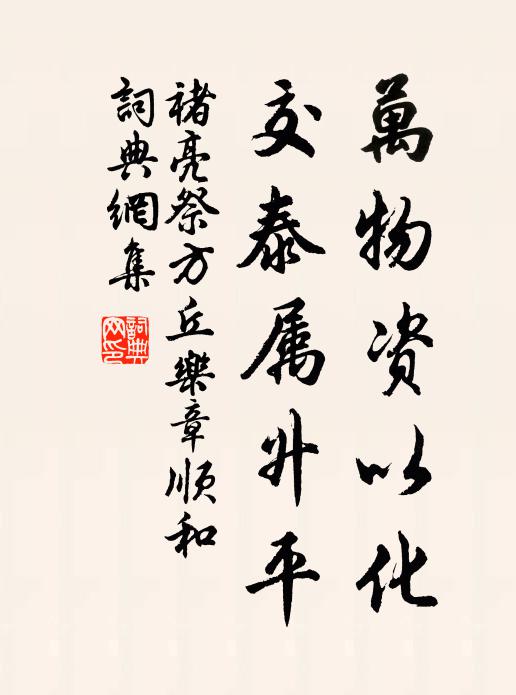 萬物资以化
交泰属升平
褚亮祭方丘樂章順和
詞典網集
詞典网印